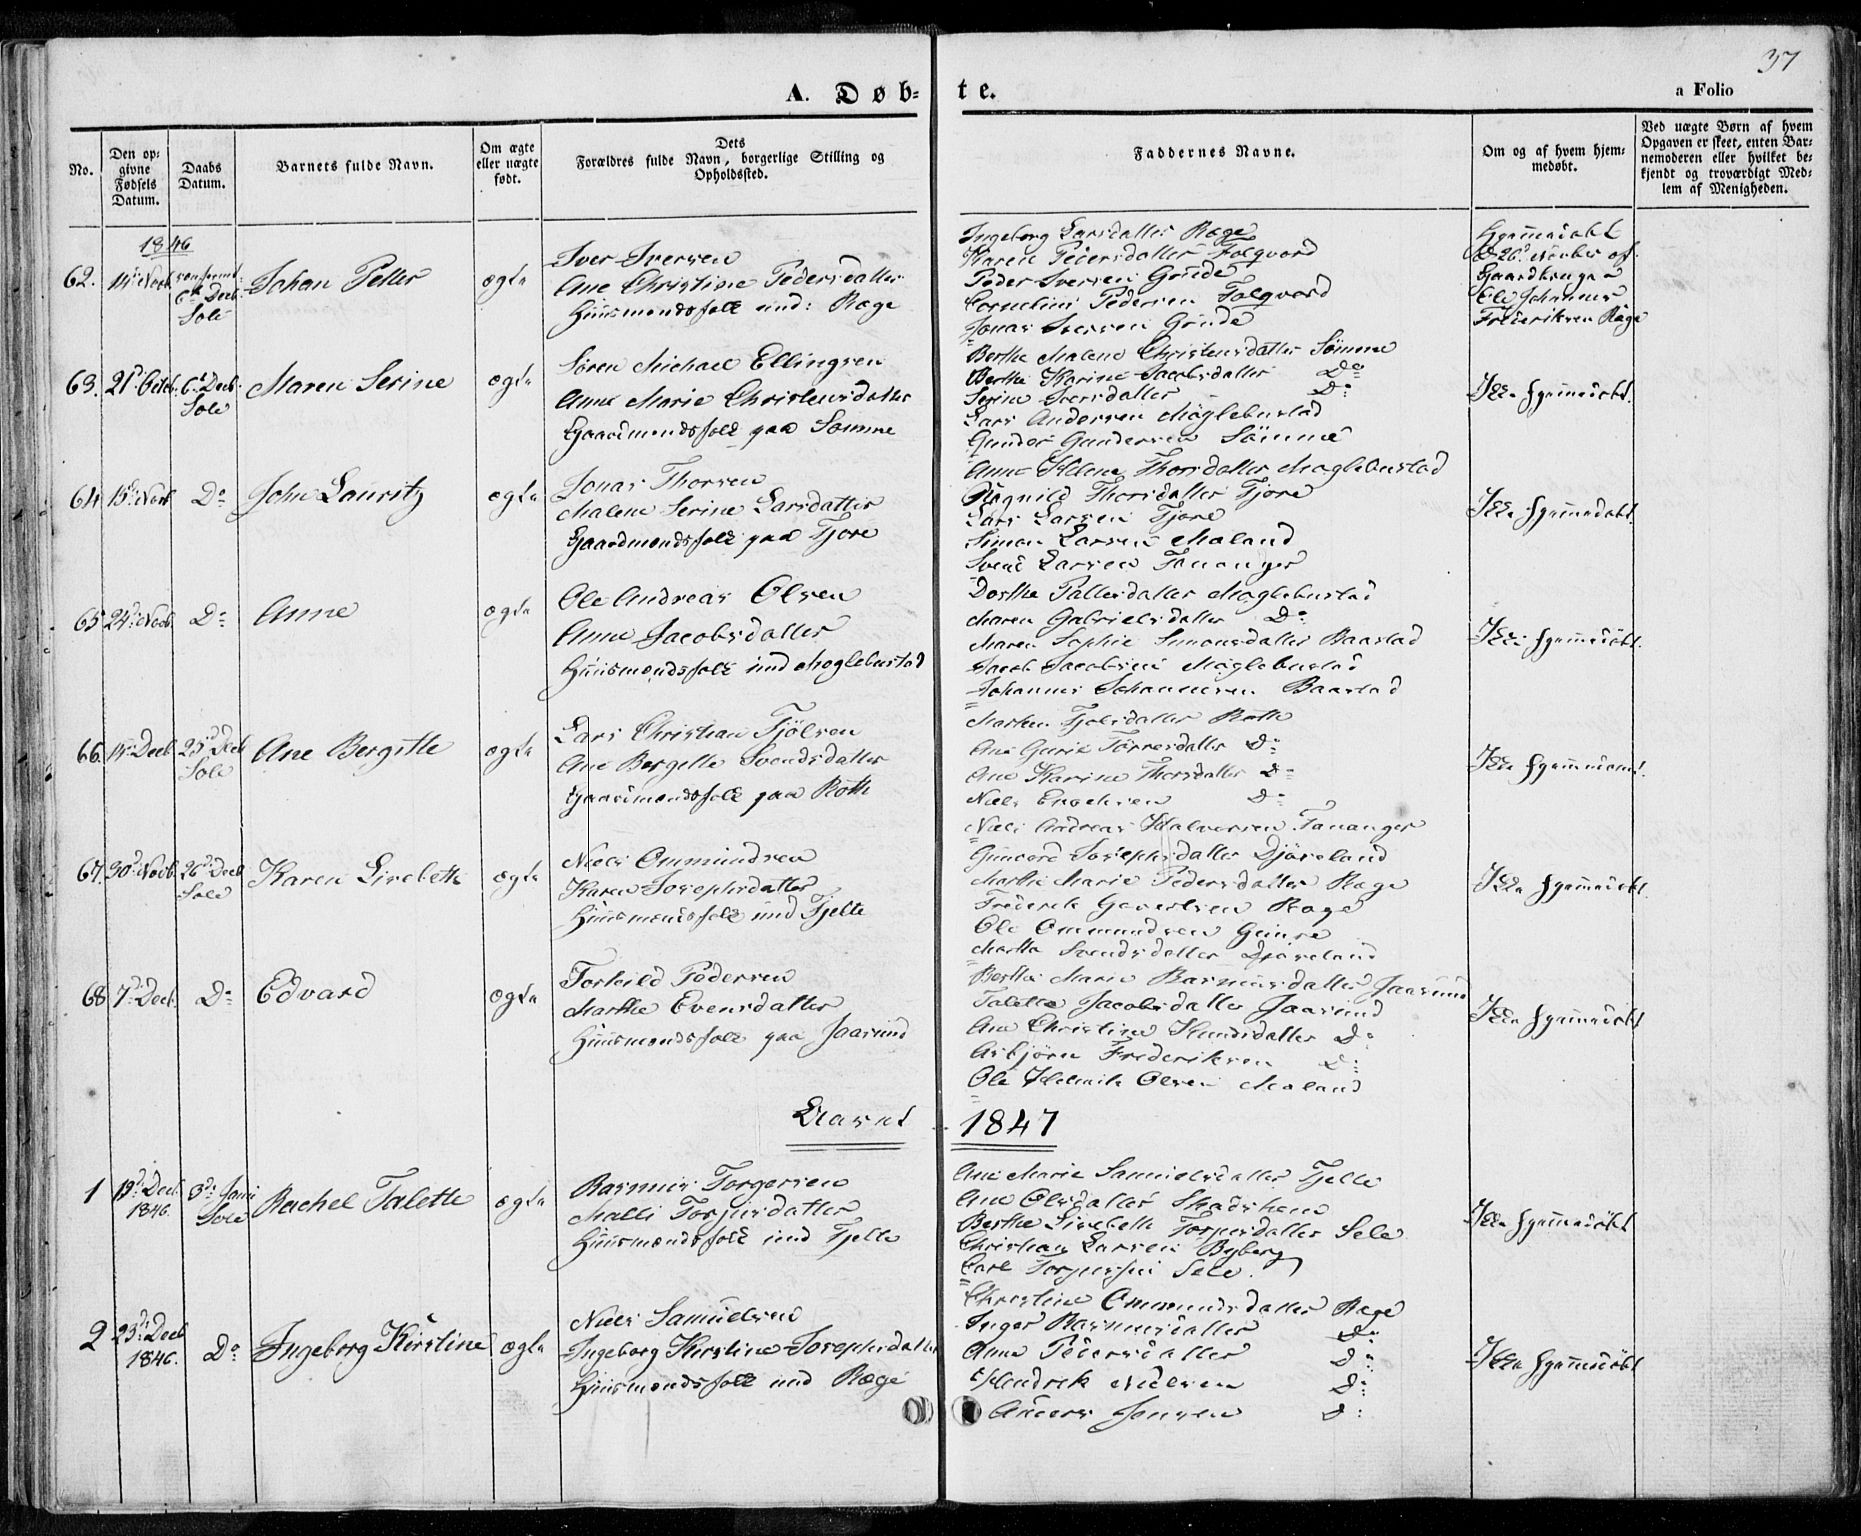 37
A. Døb-
te.
a Folio
No.
Den op-
givne
Fødsels
Datum.
Daabs
Datum.
Barnets fulde Navn.
Om ægte
eller uægte
født.
Dets
Forældres fulde Navn, borgerlige Stilling og
Opholdssted.
Faddernes Navne.
Om og af hvem hjem-
medøbt.
Ved uægte Børn af hvem
Opgaven er skeet, enten Bar-
nemoderen eller hvilket be-
kjendt og troværdigt Med-
lem af Menigheden.
1846
62.
14d Novb.
6te Decb.
Sole
Johan Petter
ægte
Iver Iversen
Ane Christine Pedersdatter
Huusmandsfolk und: Ræge
Ingeborg Larsdatter Ræge
Karen Pedersdatter Folqvord
Peder Iversen Grude
Cornelius Pedersen Folqvord
Jonas Iversen Grude
Hjemmedøbt
26d November af
Gaardbruger
Ole Johannes
Frederiksen Ræge
63.
21d Octob.
6te Decb.
Sole
Maren Serine
ægte
Søren Michael Ellingsen
Anne Marie Christensdatter
Gaardmandsfolk paa Sømme
Berthe Malene Christensdatter Sømme
Berthe Karine Jacobsdatter Do
Serine Iversdatter Do
Lars Andersen Møglebustad
Gunder Gundersen Sømme
Ikke hjemmedøbt.
64
15d Novb
Do
John Lauritz
ægte
Jonas Thorsen
Malene Serine Larsdatter
Gaardmandsfolk paa Fjore
Anne Helene Thorsdatter Møglebustad
Ragnild Thorsdatter Fjore
Lars Larsen Fjore
Simon Larsen Meland
Svend Larsen Tananger
Ikke hjemmedøbt.
65
24d Novb.
Do
Anne
ægte
Ole Andreas Olsen
Anne Jacobsdatter
Huusmandsfolk und Møglebustad
Dorthe Pallesdatter Møglebustad
Maren Gabrielsdatter Do
Maren Sophie Simonsdatter Baastad
Jacob Jacobsen Møglebustad
Johannes Johannesen Baastad
Ikke hjemmedøbt.
66.
14d Decb
25d Decb
Sole
Ane Bergitte
ægte
Lars Christian Fjølsen
Ane Bergitte Svendsdatter
Gaardmandsfolk paa Røth
Marthe Fjolsdatter Rothe
Ane Gurie Tørresdatter Do
Ane Karine Thorsdatter Do
Niels Enochsen Do
Niels Andreas Halvorsen Tananger
Ikke hjemmedøbt.
67.
30d Novb.
26d Decb
Sole
Karen Lisebeth
ægte
Niels Ommundsen
Karen Josephsdatter
Huusmandsfolk und Fjelte
Guncord Josephsdatter Djøseland
Marthe Marie Pedersdatter Ræge
Frederik Govertsen Ræge
Ole Ommundsen
Martha Svendsdatter Djøseland
Ikke hjemmedøbt.
68
7d Decb.
Do
Edvard
ægte
Torkild Pedersen
Marthe Evensdatter
Huusmandsfolk paa Jaasund
Berthe Marie Rasmusdatter Jaasund
Talette Jacobsdatter Jaasund
Ane Christine Knudsdatter Do
Asbjørn Frederiksen Do
Ole Helmik Olsen Meland
Ikke hjemmedøbt
Aaret
1847
1
13d Decb
1846.
3d Janr
Sole
Rachel Talette
ægte
Rasmus Torgersen
Malli Torjusdatter
Huusmandsfolk und Fjelte
Ane Marie Samuelsdatter Fjelte
Ane Olsdatter Skadshem
Berthe Lisebeth Torjusdatter Sele
Christian Larsen Byberg
Carl Torjussen Sele.
Ikke hjemmedøbt
2
23d Decb
1846.
Do
Ingeborg Kirstine
ægte
Niels Samuelsen
Ingeborg Kirstine Josephsdatter
Huusmandsfolk und Ræge
Christine Ommundsdatter Ræge
Inger Rasmusdatter Do
Anne Pedersdatter Do
Hendrik Nielsen Do
Anders Jensen Do
Ikke hjemmedøbt